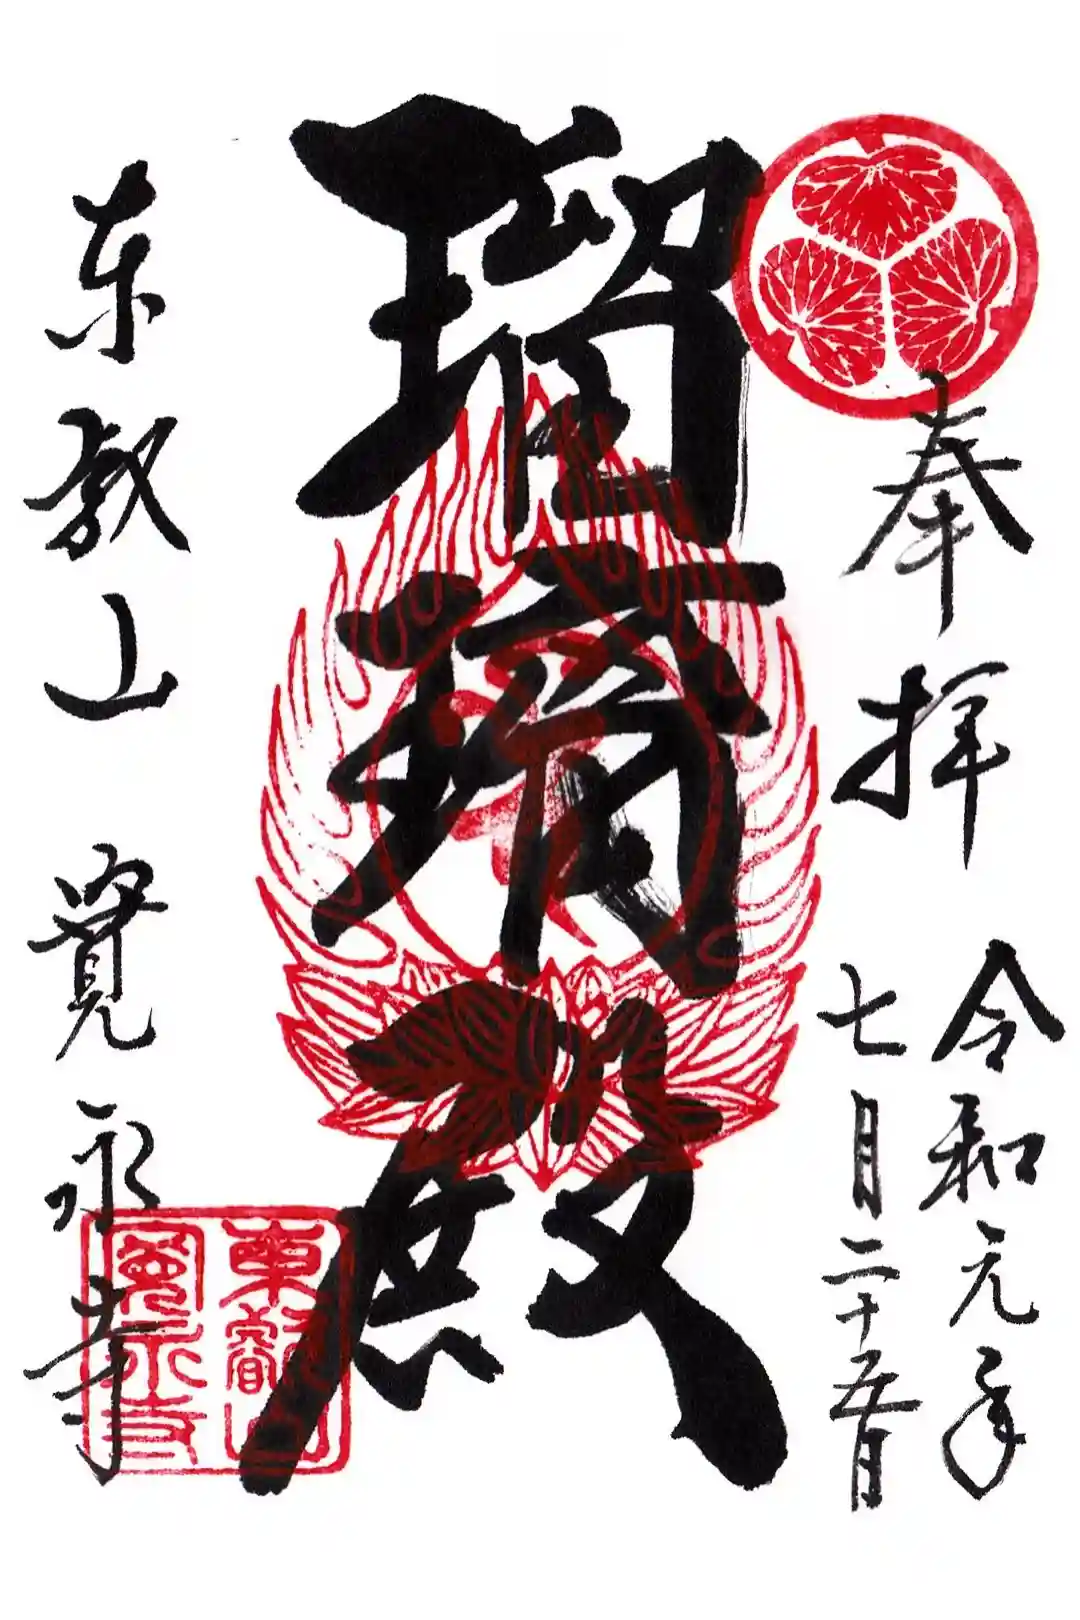 奉拝
令和元年
七月二十五日
瑠璃殿
東叡山 寛永寺
東叡山
寛永寺